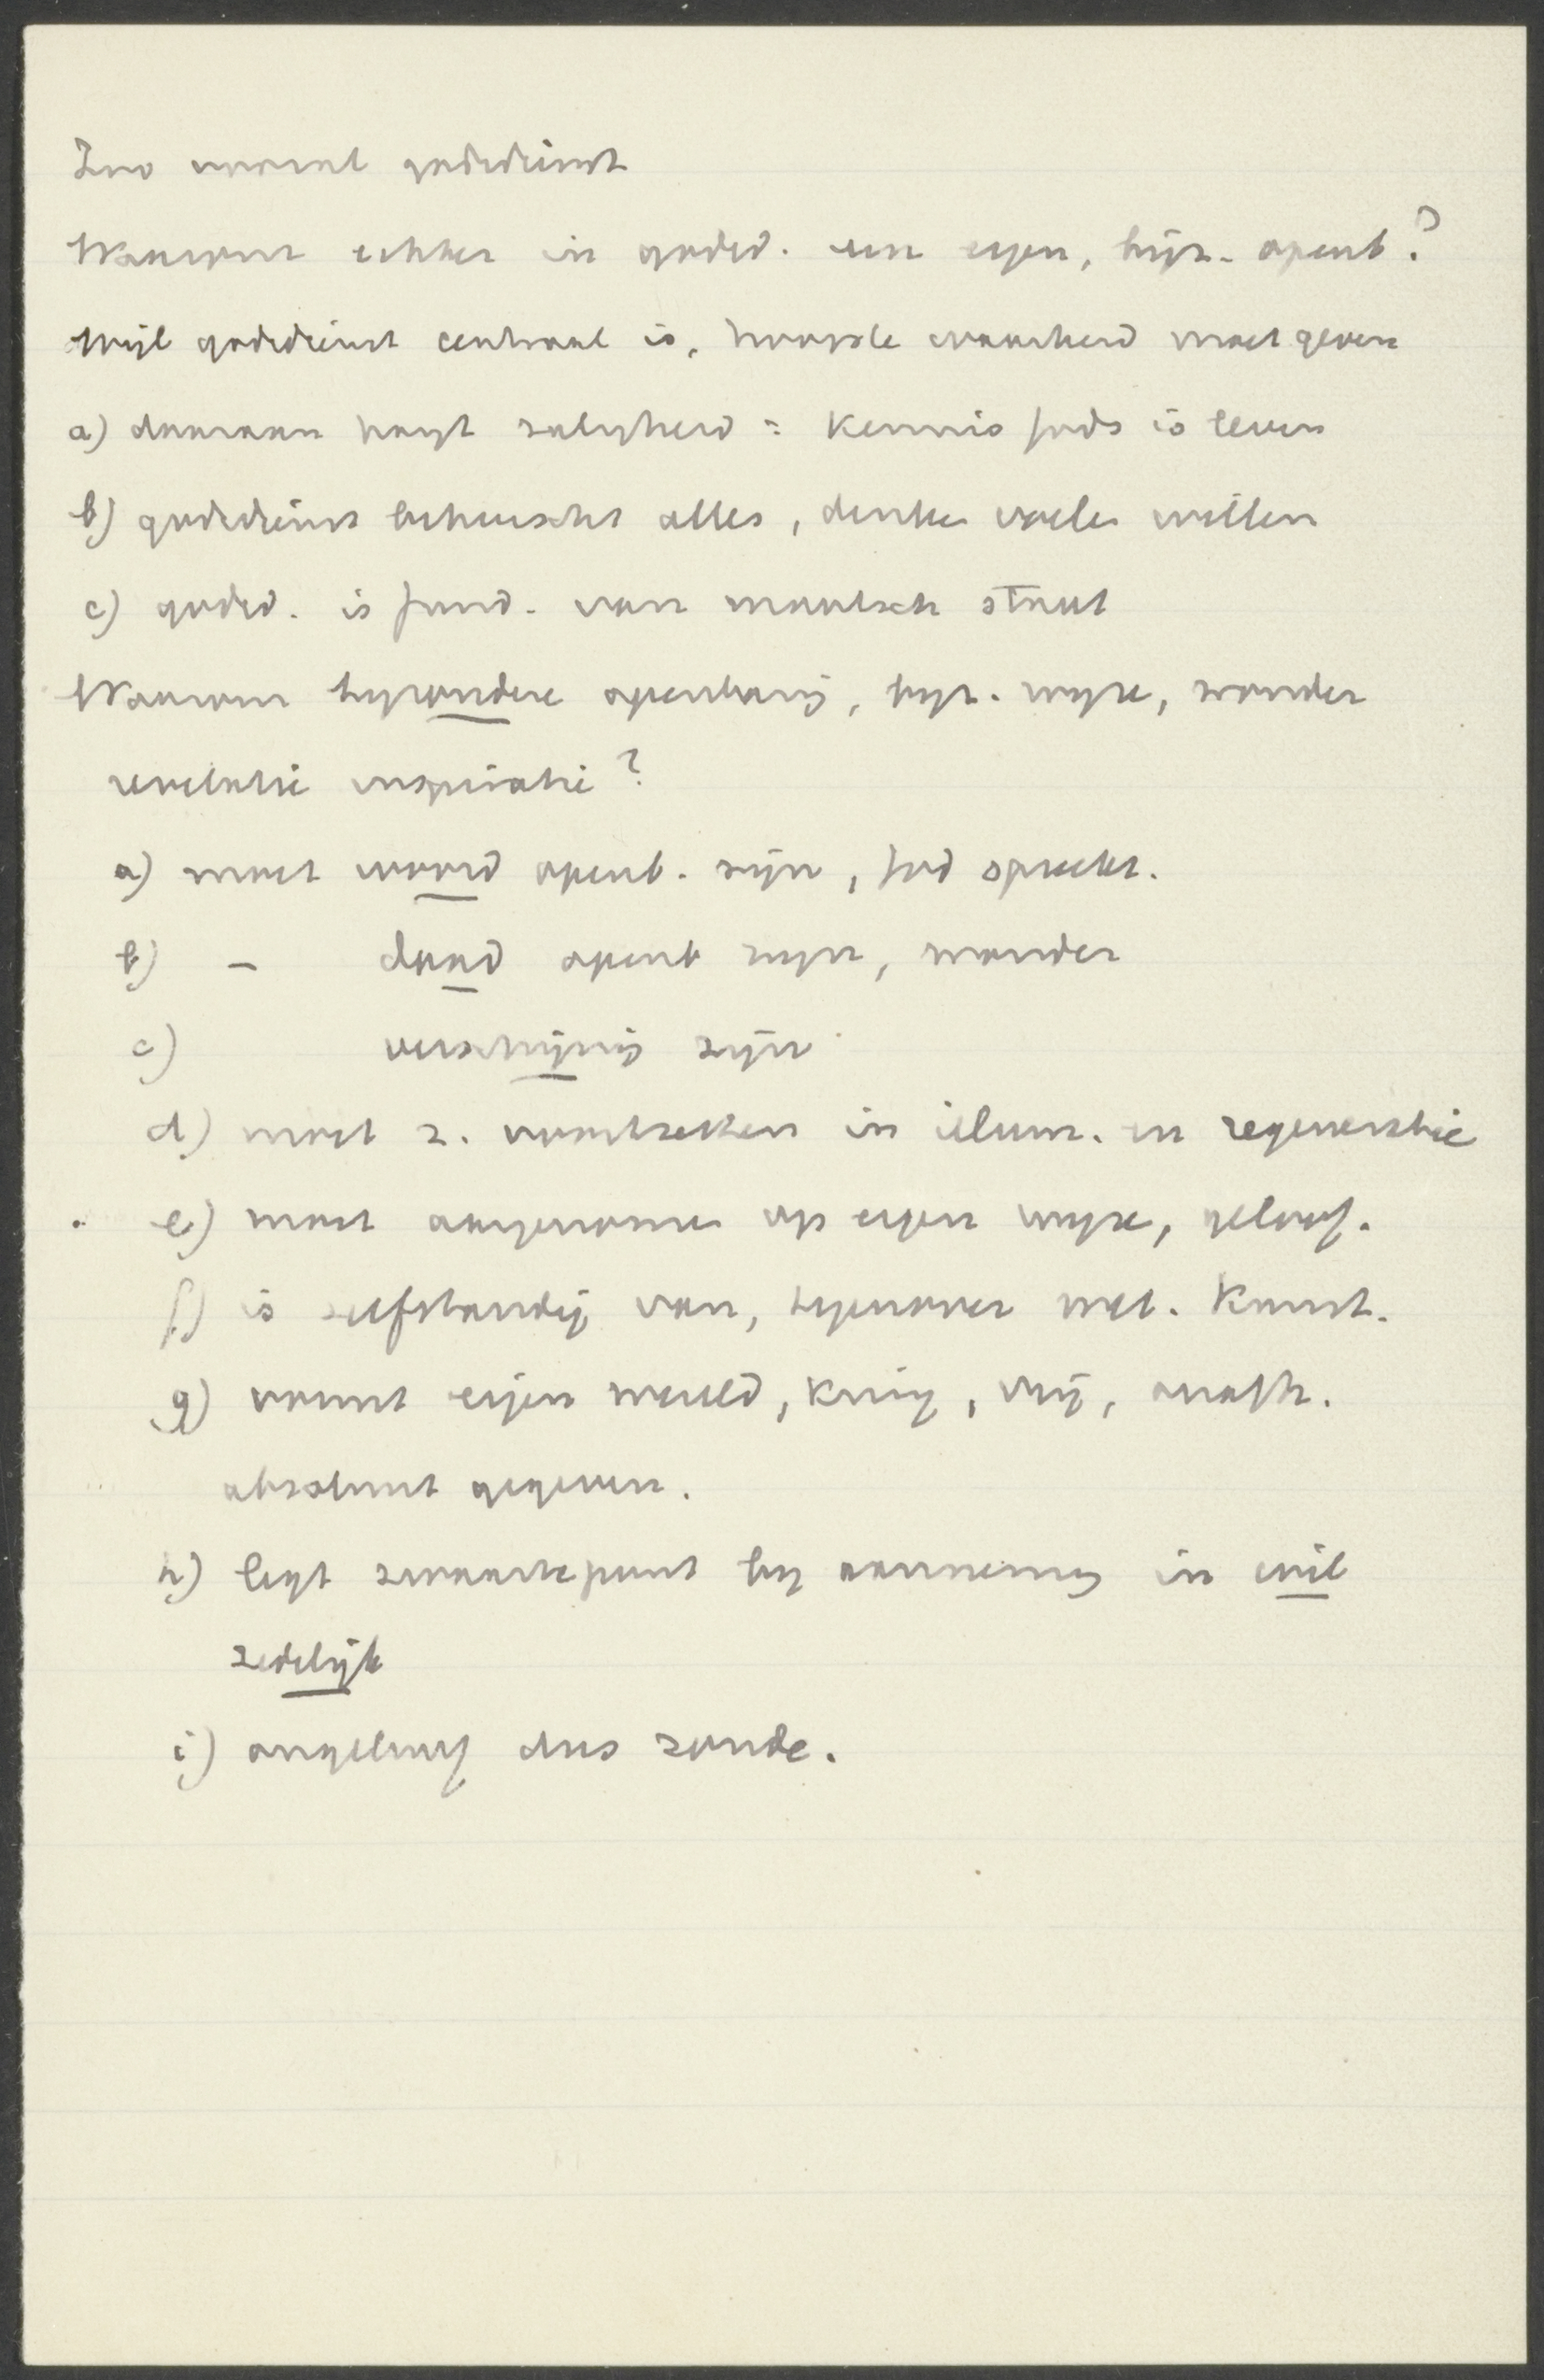 Zoo vooral godsdienst
Waarom echter in godsd. een eigen, bijz. openb?
Wijl godsdienst centraal is, hoogste waarheid moet geven
a) daaraan hangt zaligheid = kennis Gods is leven
b) godsdienst beheerscht alles, denken voelen willen
c) godsd. is fund. van maatsch staat
Waarom byzondere openbaring, byz. wyze, wonder
revelatie inspiratie?
a) moet woord openb. zijn, God spreekt.
b) – daad openb zyn, wonder
c) verschijning zijn
d) moet z. voortzetten in illum. en regeneratie
e) moet aangenomen op eigen wyze, geloof.
f) is zelfstandig van, tegenover wet. Kunst.
g) vormt eigen wereld, kring, vrij, onafh.
absoluut gegeven.
h) legt zwaartepunt by aanneming in wil
zedelijk
i) ongeloof dus zonde.